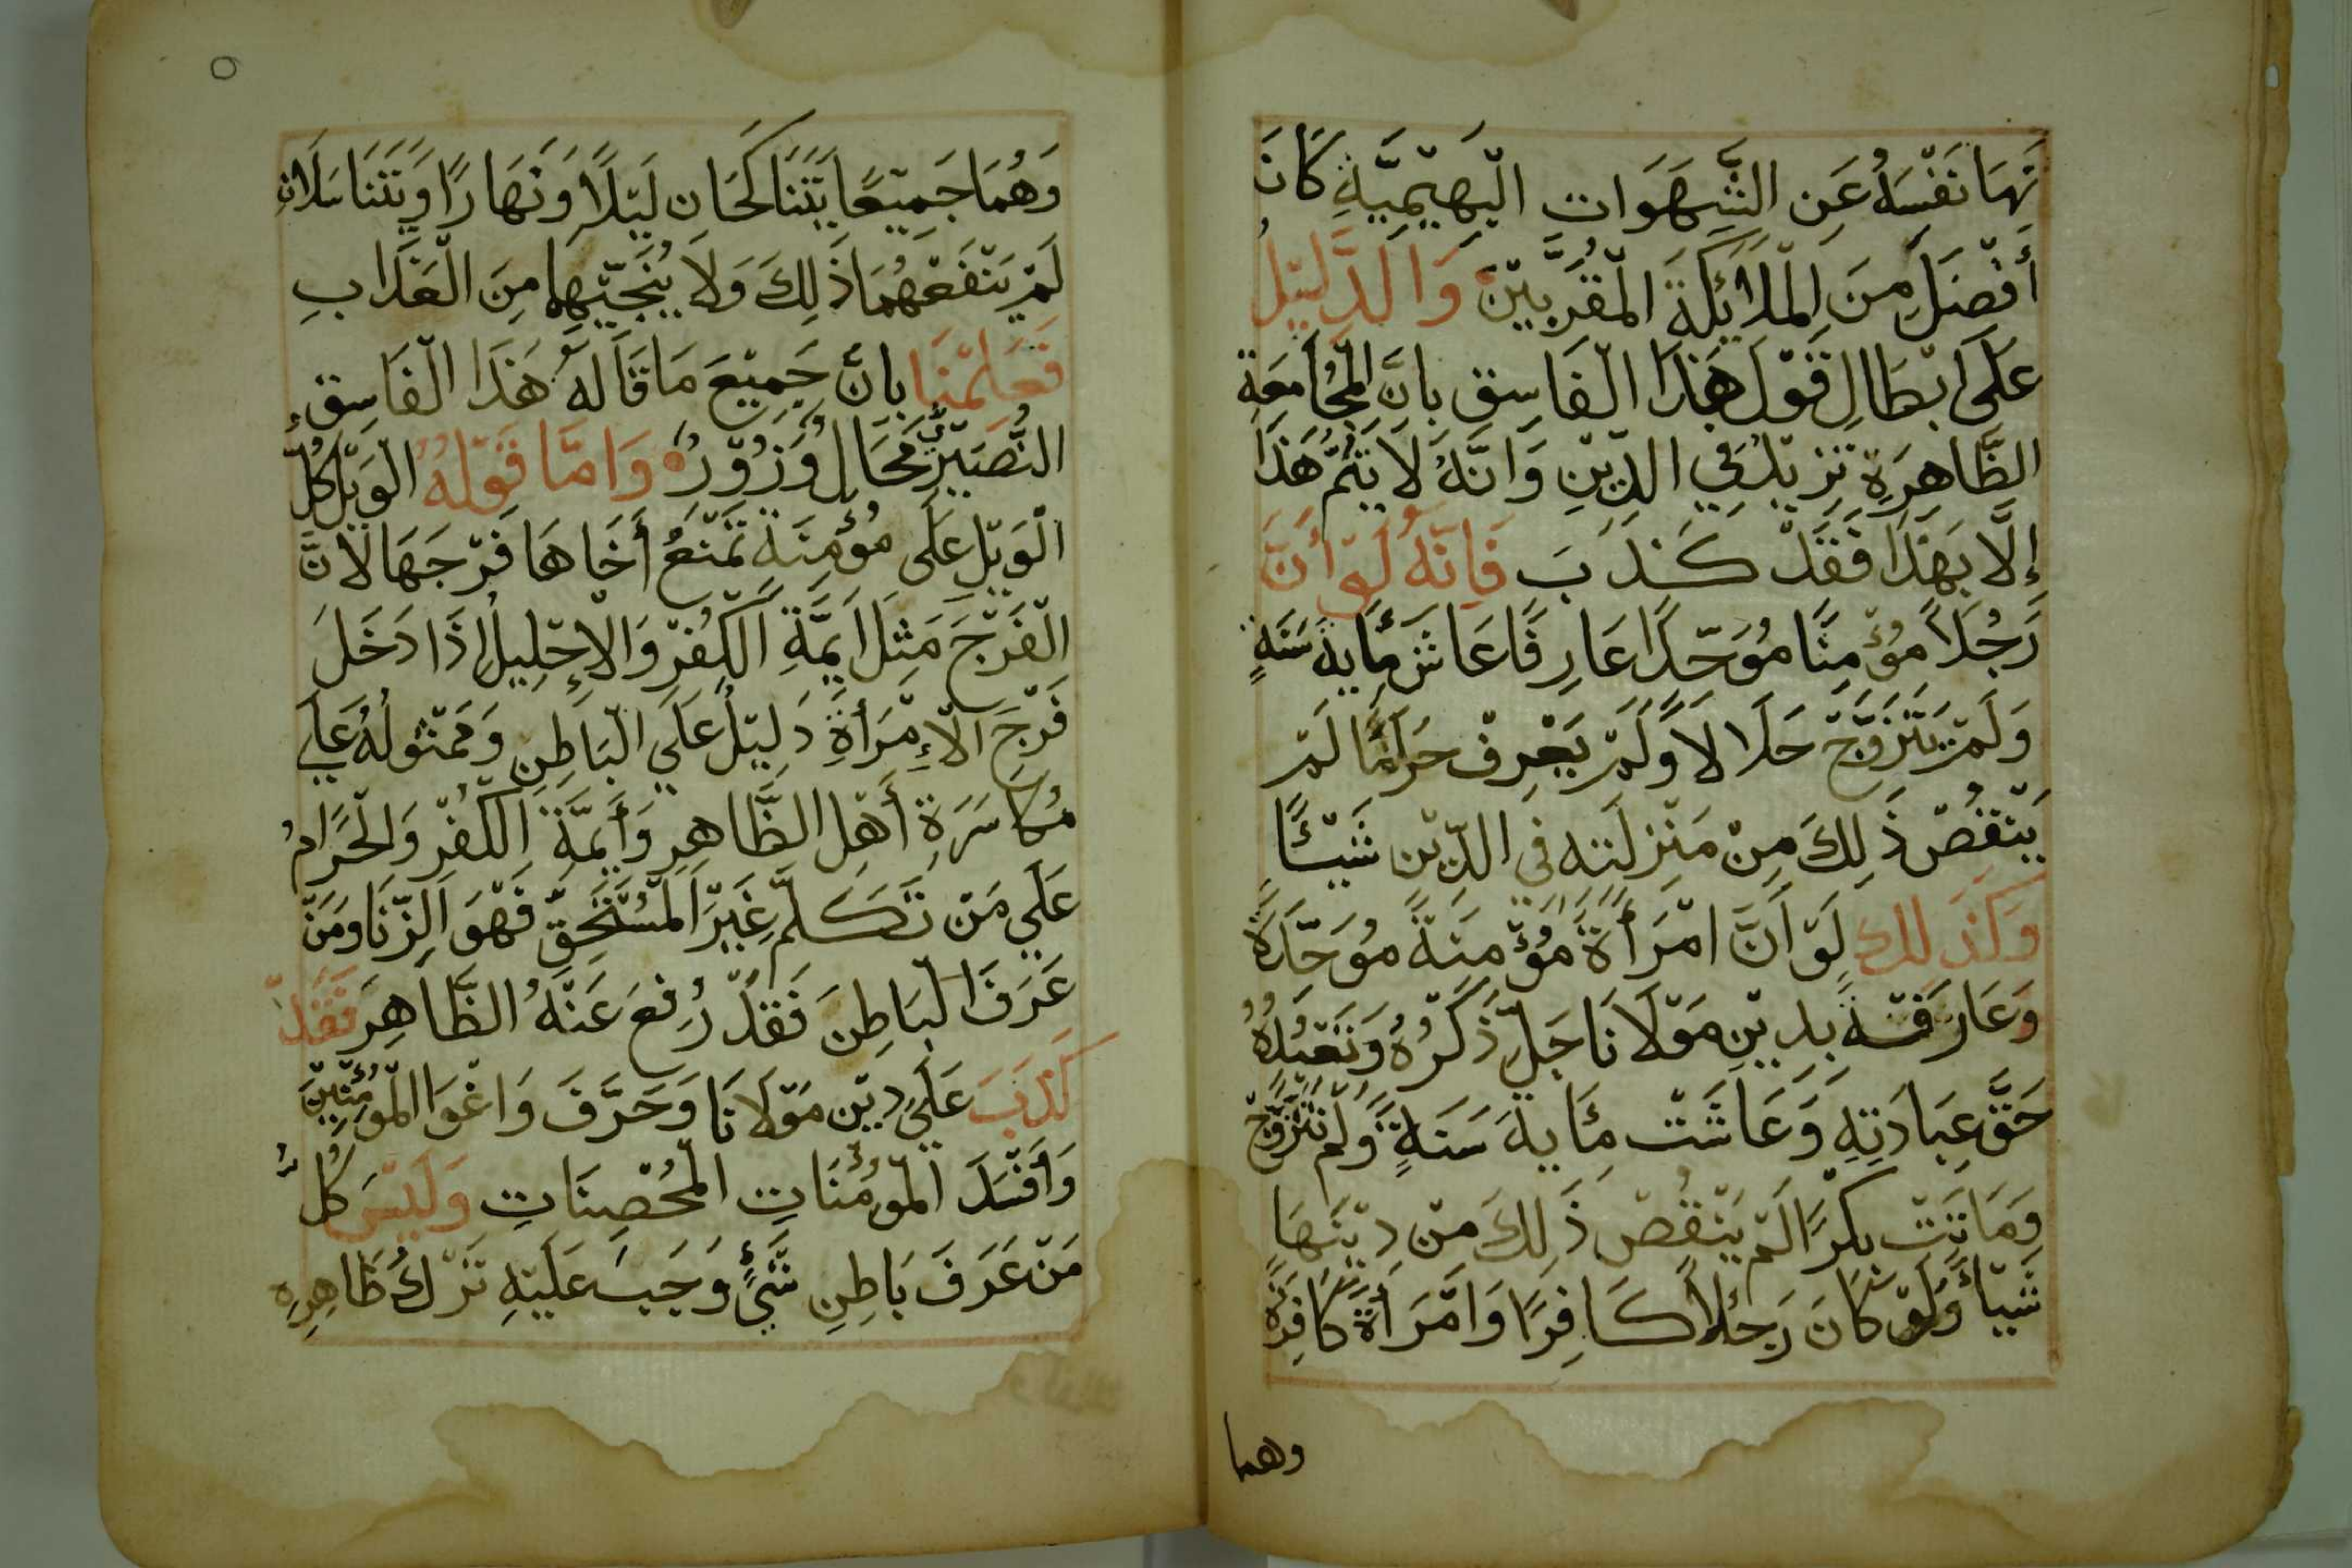 نَهَا نَفْسَهُ عَنِ الشَّهَوَات الْبَهِيْمِيَّةِ كَانَ
أَفْضَلَ مِنَ المَلَائِكَةَ الْمُقَرَّبِيْنَ وَالدَّلِيْلُ
عَلَى ابْطَالِ قَوْلِ هَذَا الْفَاسِقِ بِاَنَّ الْمُجَامَعَةِ
الظَّاهِرَةِ تَزِيْدُ فِي الدِّيْنِ وَانَّهُ لَا يَتِمُّ هَذَا
إِلَّا بِهَذَا فَقَدْ كَذَبَ فَاِنَّهُ لَوْ أَنَّ
رَجُلاً مُؤْمِنًا مُوَحِّدًا عَارِفًا عَاشَ مِأيَة سَنَةٍ
وَلَمْ يَتَزَوَّجْ حَلَالاً وَلَمْ يَعْرِفْ حَرَامًا لَمْ
يَنْقُصْ ذَلِكَ مِنْ مَنْزِلَتِه فِي الدِّيْن شَيْئًا
وَكَذَلِكَ لَوْ اَنَّ امْرَأَةً مُؤْمِنَةً مُوَحِّدَةً
وَعَارِفَةً بِدِيْنِ مَوْلَانَا جَلَّ ذِكْرُهُ وَتَعْبُدُهُ
حَقَّ عِبَادَتِهِ وَعَاشَتْ مِئَايةَ سَنَةٍ وَلَمْ تَتَزَوَّجْ
وَمَاتَتْ بِكْرًا لَمْ يَنْقُصْ ذَلِكَ مِنْ دِيْنِهَا
شَيْأً وَلَوْ كَانَ رَجُلاً كَافِرًا وَامْرَأَةً كَافِرَةً
وهما
٥
وَهُمَا جَمِيْعًا يَتَنَاكَحَان لَيْلًا وَنَهَارًا وَيَتَنَاسَلَانِ
لَمْ يَنْفَعْهُمَا ذَلِكَ وَلَا يُنَجِّيْهِمَا مِنَ الْعَذَابِ
فَعَلِمْنَا بِاَنَّ جَمِيْعَ مَا قَالَهُ هَذَا الْفَاسِقِ
النُّصَيْرِيُّ مُحَالٌ وَزُوْرُهُ وَامَّا قَوْلهُ الْوَيْلُ كُلُّ
الْوَيْلِ عَلَى مُؤْمِنَةٍ تَمْنَعُ أَخَاهَا فَرْجَهَا لَانَّ
الْفَرْجَ مَثِلُ اَيِمَّةِ الْكُفْرِ وَالْإِحْلِيلُ اذَا دَخَلَ
فَرْجَ الْإِمْرَأةِ دَلِيْلُ عَلَي الْبَاطِنِ وَمَمْثُولُهُ عَلَي
مُكَاسَرَةِ أَهْلِ الظَّاهِرِ وَأَيِمَّةِ الْكُفْرِ وَالْحَرَامُ
عَلَي مَنْ تَكَلَّمِ غَيْرَ الْمُسْتَحِقِّ فَهْوَ الزِّنَا وَمَنْ
عَرَفَ الْبَاطِنَ فَقَدْ رُفِعَ عَنْهُ الظَّاهِرَ فَقَدْ
كَذَبَ عَلَي دِيْن مَوْلَانَا وَحَرَّفَ وَاغْوَا الْمُؤْمِنِيْنَ
وَأَفْسَدَ الْمؤُمُنَاتِ الْمُحْصِنَاتِ وَلَيْسَ كُلُّ
مَنْ عَرَفَ بَاطِنِ شَيْءٍ وَجَبَ عَلَيْهِ تَرْكُ ظَاهِرِهِ